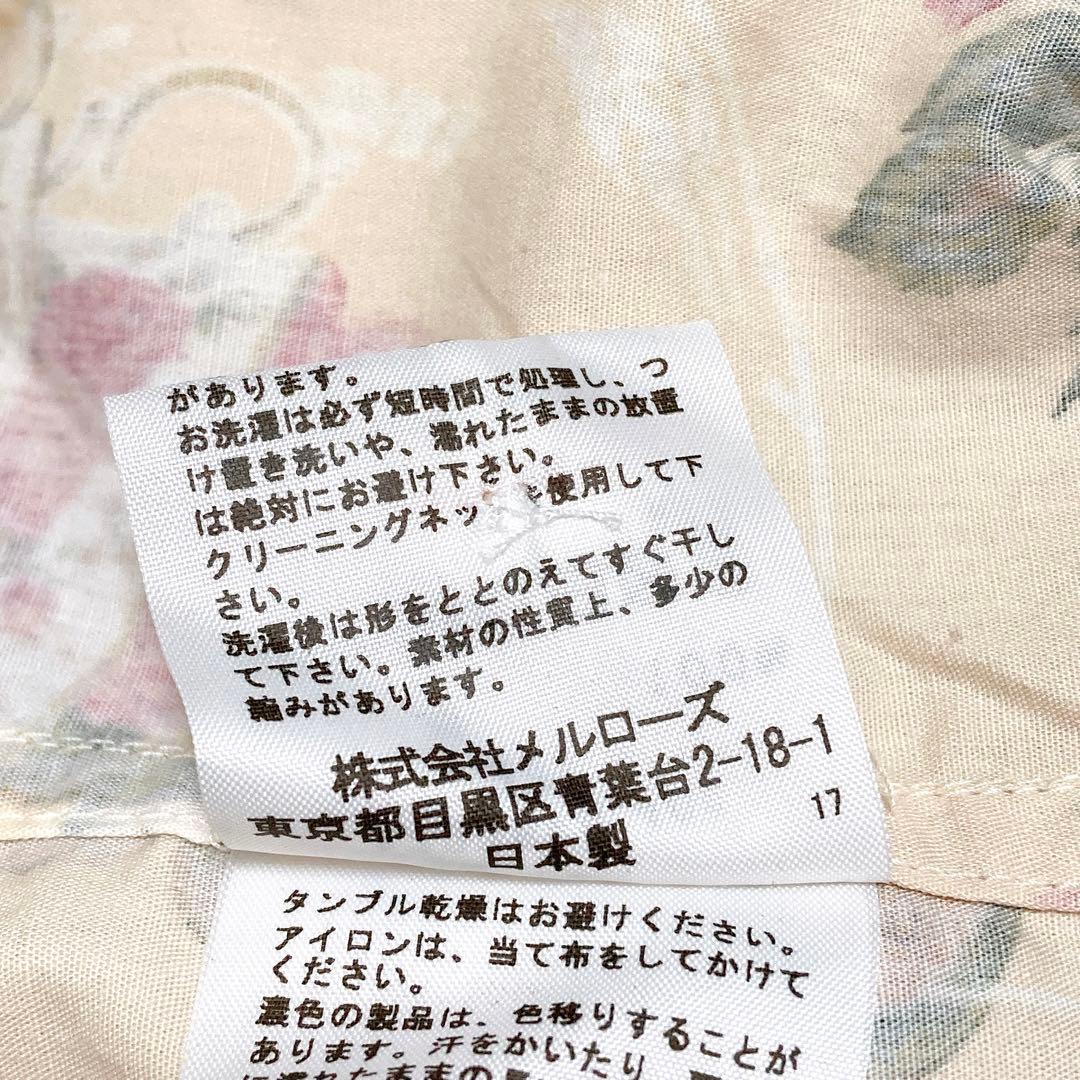 があります。
お洗濯は必ず短時間で処理し、つ
け置き洗いや、濡れたままの放置
は絶対にお避け下さい。
クリーニングネッ を使用して下
さい。
洗濯後は形をととのえてすぐ干し
て下さい。素材の性質上、多少の
縮みがあります。
株式会社メルローズ
東京都目黒区青葉台2-18-1
日本製
17
タンブル乾燥はお避けください。
アイロンは、当て布をしてかけて
ください。
濃色の製品は、色移りすることが
あります。汗をかいたり
に濡れたままの